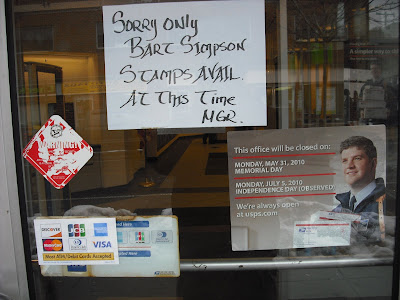 SORRY ONLY
BART SIMPSON
STAMPS AVAIL.
AT THIS TIME
MGR.
WARNING!!
This office will be closed on:
MONDAY, MAY 31, 2010
MEMORIAL DAY
MONDAY, JULY 5, 2010
INDEPENDENCE DAY (OBSERVED)
We're always open
at usps.com.
DISCOVER
JCB
MasterCard
VISA
Most ATM/Debit Cards Accepted